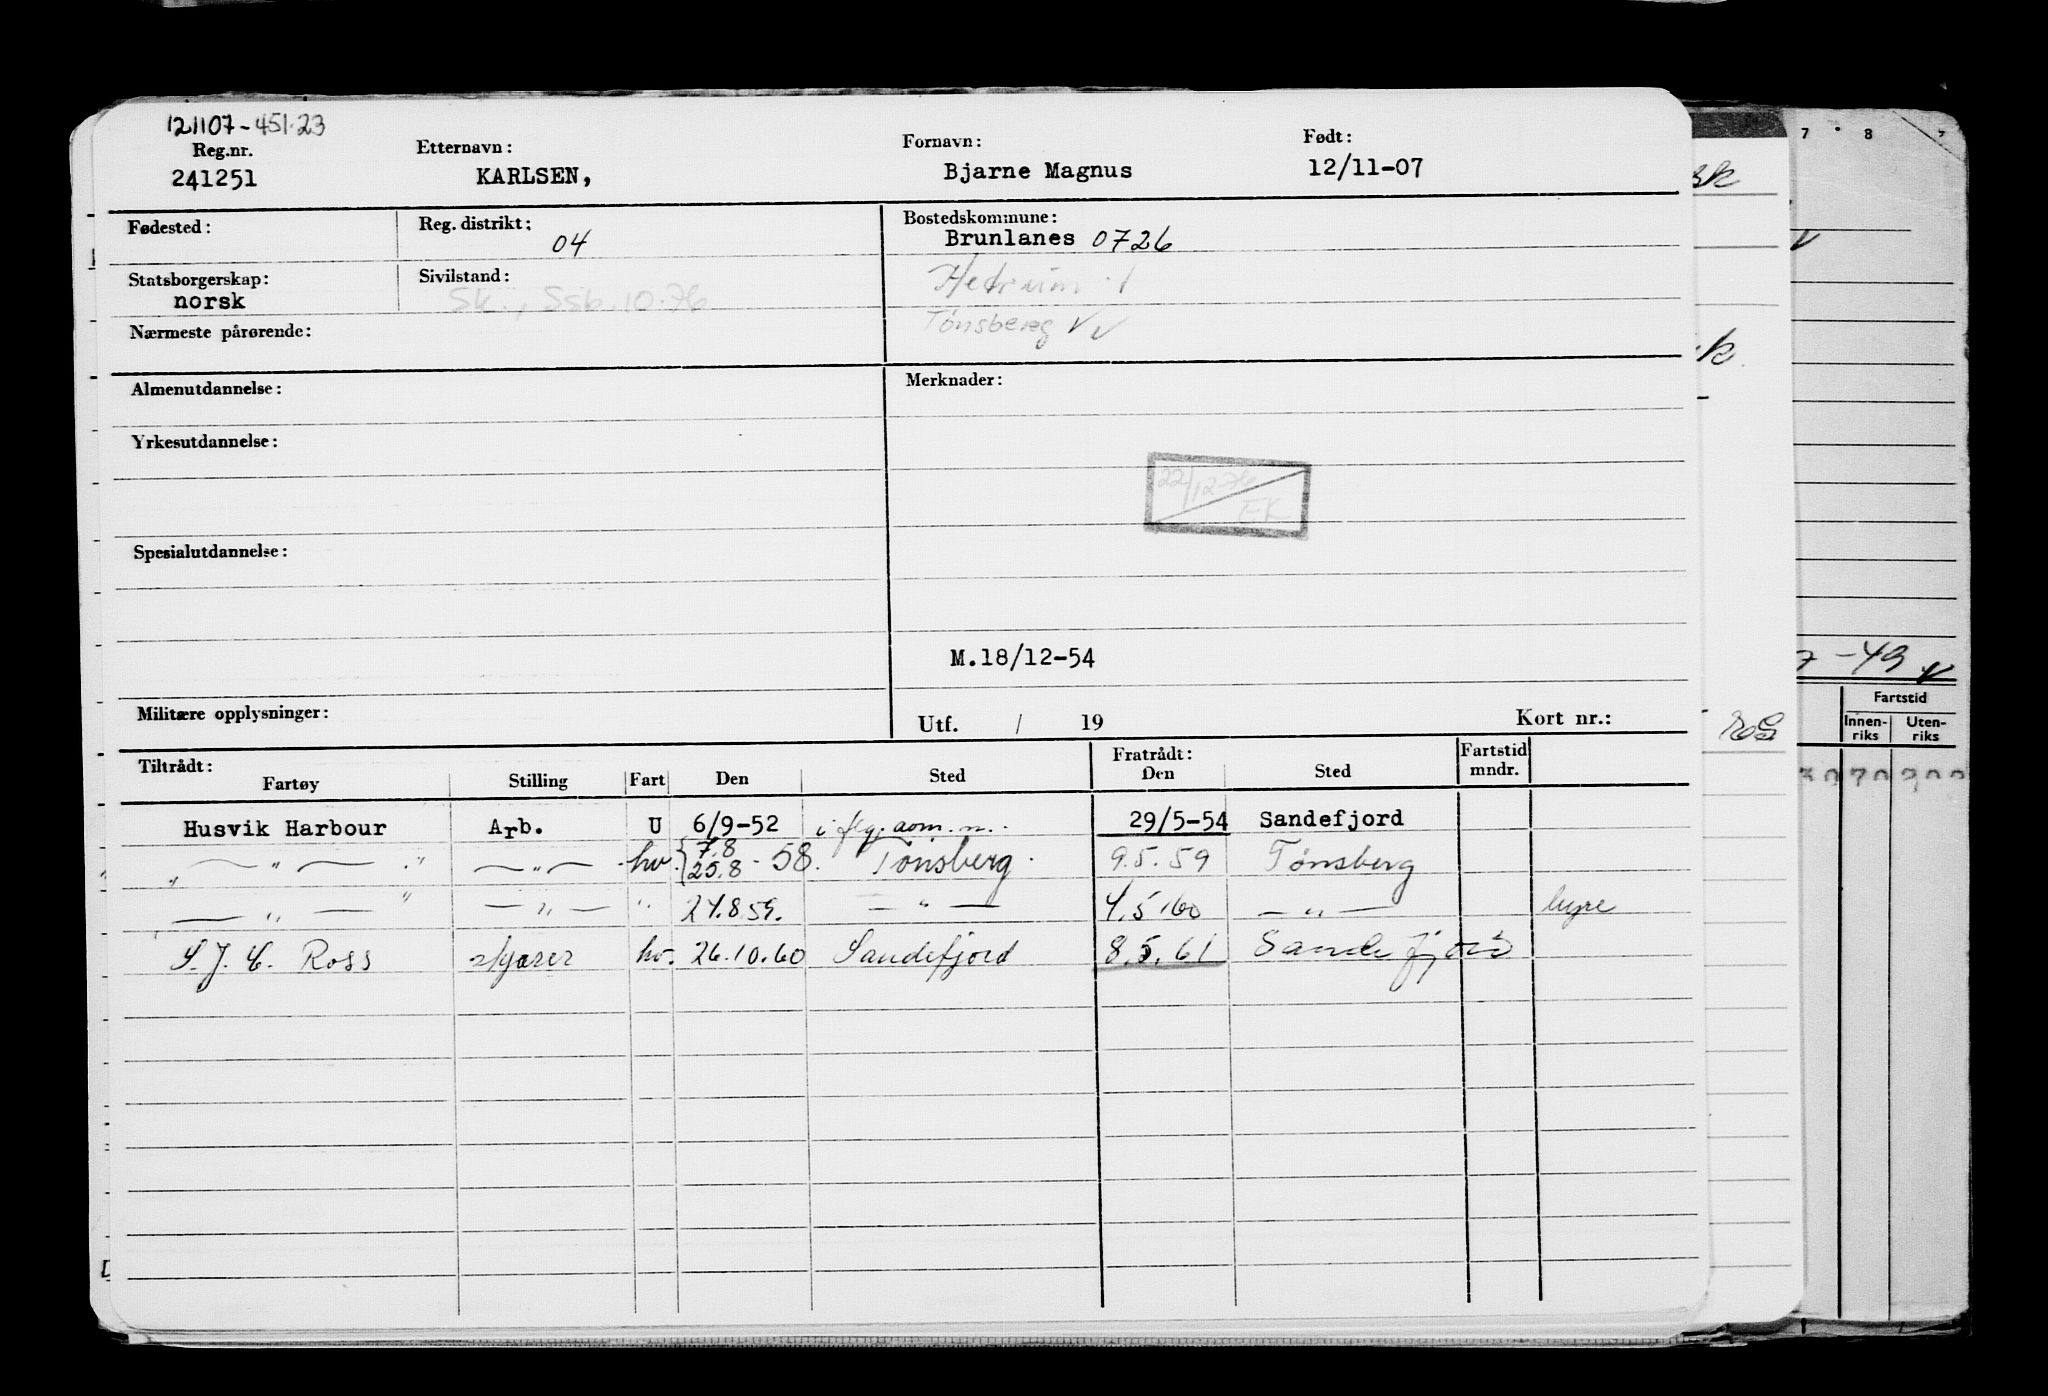 121107-451.23
Reg.nr. Etternavn: Fornavn: Født:
241251 KARLSEN, Bjarne Magnus 12/11-07
Fødested: Reg. distrikt: 04 Bostedskommune:
Brunlanes 0726
Statsborgerskap: norsk Sivilstand: Hedrum
Sk., Ssb. 10.76
Nærmeste pårørende: Tønsberg
Almenutdannelse: Merknader:
Yrkesutdannelse:
22/12-76
EK
Spesialutdannelse:
M.18/12-54
Militære opplysninger: Utf. / 19 Kort nr.:
Tiltrådt: Fratrådt: Fartstid
Fartøy Stilling Fart Den Sted Den Sted mndr.
Husvik Harbour Arb. U 6/9-52 i flg. 29/5-54 Sandefjord
— " — " — " — hv. {7.8 25.8 - 58. Tønsberg 9.5.59 Tønsberg
— " — " — " — " 27.8.59. — " — 4.5.60 — " — hyre
S.J.C. Ross hv. 26.10.60 Sandefjord 8.5.61 Sandefjord
7 8
sk
k.
7-49
Fartstid
Innen-
riks Uten-
riks